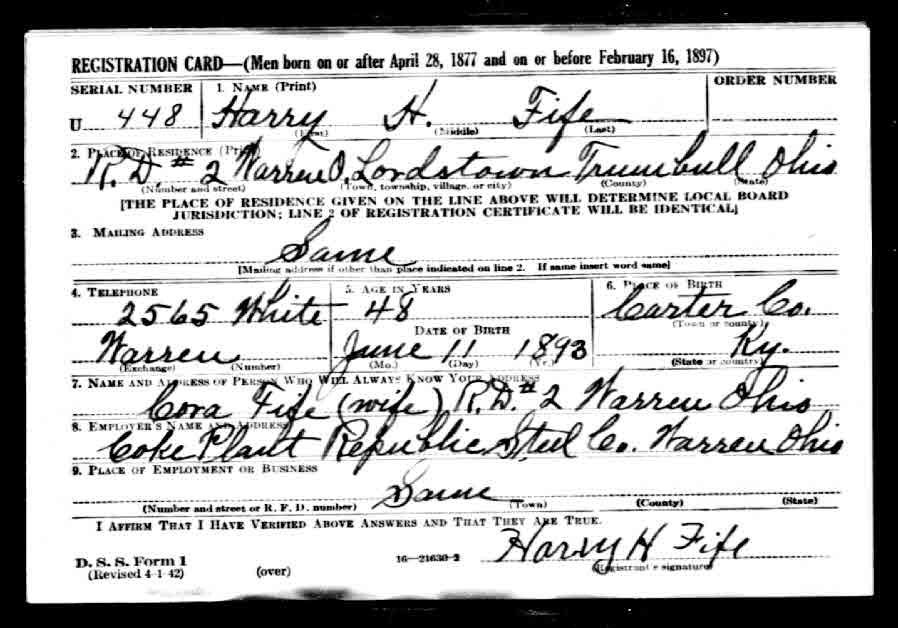 REGISTRATION CARD—(Men born on or after April 28, 1877 and on or before February 16, 1897)
SERIAL NUMBER 1. NAME (Print) ORDER NUMBER
U 448 Harry H. Fife
(First) (Middle) (Last)
2. PLACE OF RESIDENCE (Print)
R.D. # 2 Warren O. Lordstown Trumbull Ohio
(Number and street) (Town, township, village, or city) (County) (State)
[THE PLACE OF RESIDENCE GIVEN ON THE LINE ABOVE WILL DETERMINE LOCAL BOARD
JURISDICTION; LINE 2 OF REGISTRATION CERTIFICATE WILL BE IDENTICAL]
3. MAILING ADDRESS
Same
[Mailing address if other than place indicated on line 2. If same insert word same]
4. TELEPHONE 5. AGE IN YEARS 6. PLACE OF BIRTH
2565 White 48 Carter Co.
DATE OF BIRTH (Town or county)
Warren June 11 1893 Ky.
(Exchange) (Number) (Mo.) (Day) (Yr.) (State or country)
7. NAME AND ADDRESS OF PERSON WHO WILL ALWAYS KNOW YOUR ADDRESS
Cora Fife (wife) R.D. # 2 Warren Ohio
8. EMPLOYER'S NAME AND ADDRESS
Coke Plant Republic Steel Co. Warren Ohio
9. PLACE OF EMPLOYMENT OR BUSINESS
Same
(Number and street or R. F. D. number) (Town) (County) (State)
I AFFIRM THAT I HAVE VERIFIED ABOVE ANSWERS AND THAT THEY ARE TRUE.
Harry H Fife
D. S. S. Form 1 16—21630-2
(Revised 4-1-42) (over) (Registrant's signature)